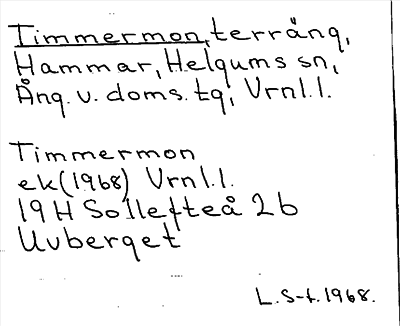 Timmermon, terräng,
Hammar, Helgums sn,
Ång. v. doms. tg, Vrnl.l.
Timmermon
ek(1968) Vrnl.l.
19H Sollefteå 2b
Uvberget
L.S-t. 1968.